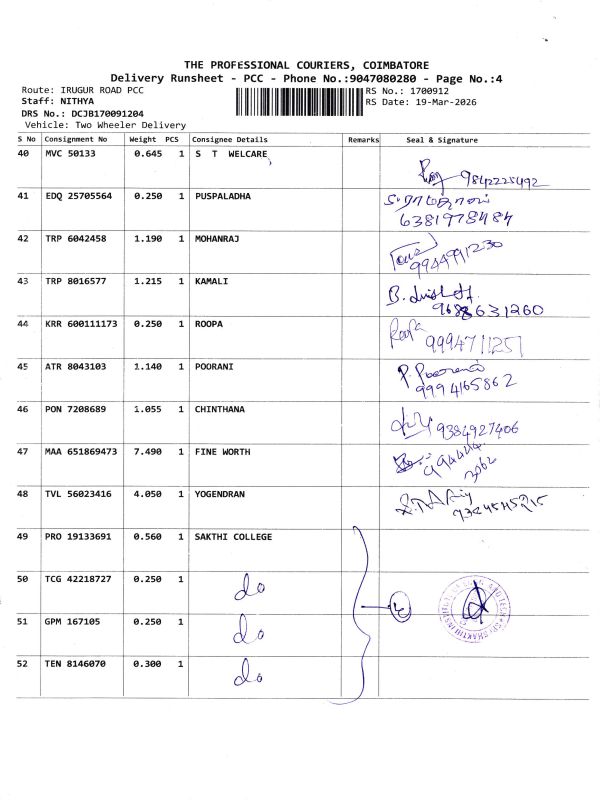 THE PROFESSIONAL COURIERS, COIMBATORE
Delivery Runsheet - PCC - Phone No.:9047080280 - Page No.:4
Route: IRUGUR ROAD PCC
RS No.: 1700912
Staff: NITHYA
RS Date: 19-Mar-2026
DRS No.: DCJB170091204
Vehicle: Two Wheeler Delivery
S No Consignment No Weight PCS Consignee Details Remarks Seal & Signature
40 MVC 50133 0.645 1 S T WELCARE
9842225492
41 EDQ 25705564 0.250 1 PUSPALADHA
6381978484
42 TRP 6042458 1.190 1 MOHANRAJ
9944991230
43 TRP 8016577 1.215 1 KAMALI
9688631260
44 KRR 600111173 0.250 1 ROOPA
Roopa
9994711251
45 ATR 8043103 1.140 1 POORANI
P. Poorani
9994165862
46 PON 7208689 1.055 1 CHINTHANA
9384927406
47 MAA 651869473 7.490 1 FINE WORTH
48 TVL 56023416 4.050 1 YOGENDRAN
49 PRO 19133691 0.560 1 SAKTHI COLLEGE
50 TCG 42218727 0.250 1 do
51 GPM 167105 0.250 1 do
52 TEN 8146070 0.300 1 do